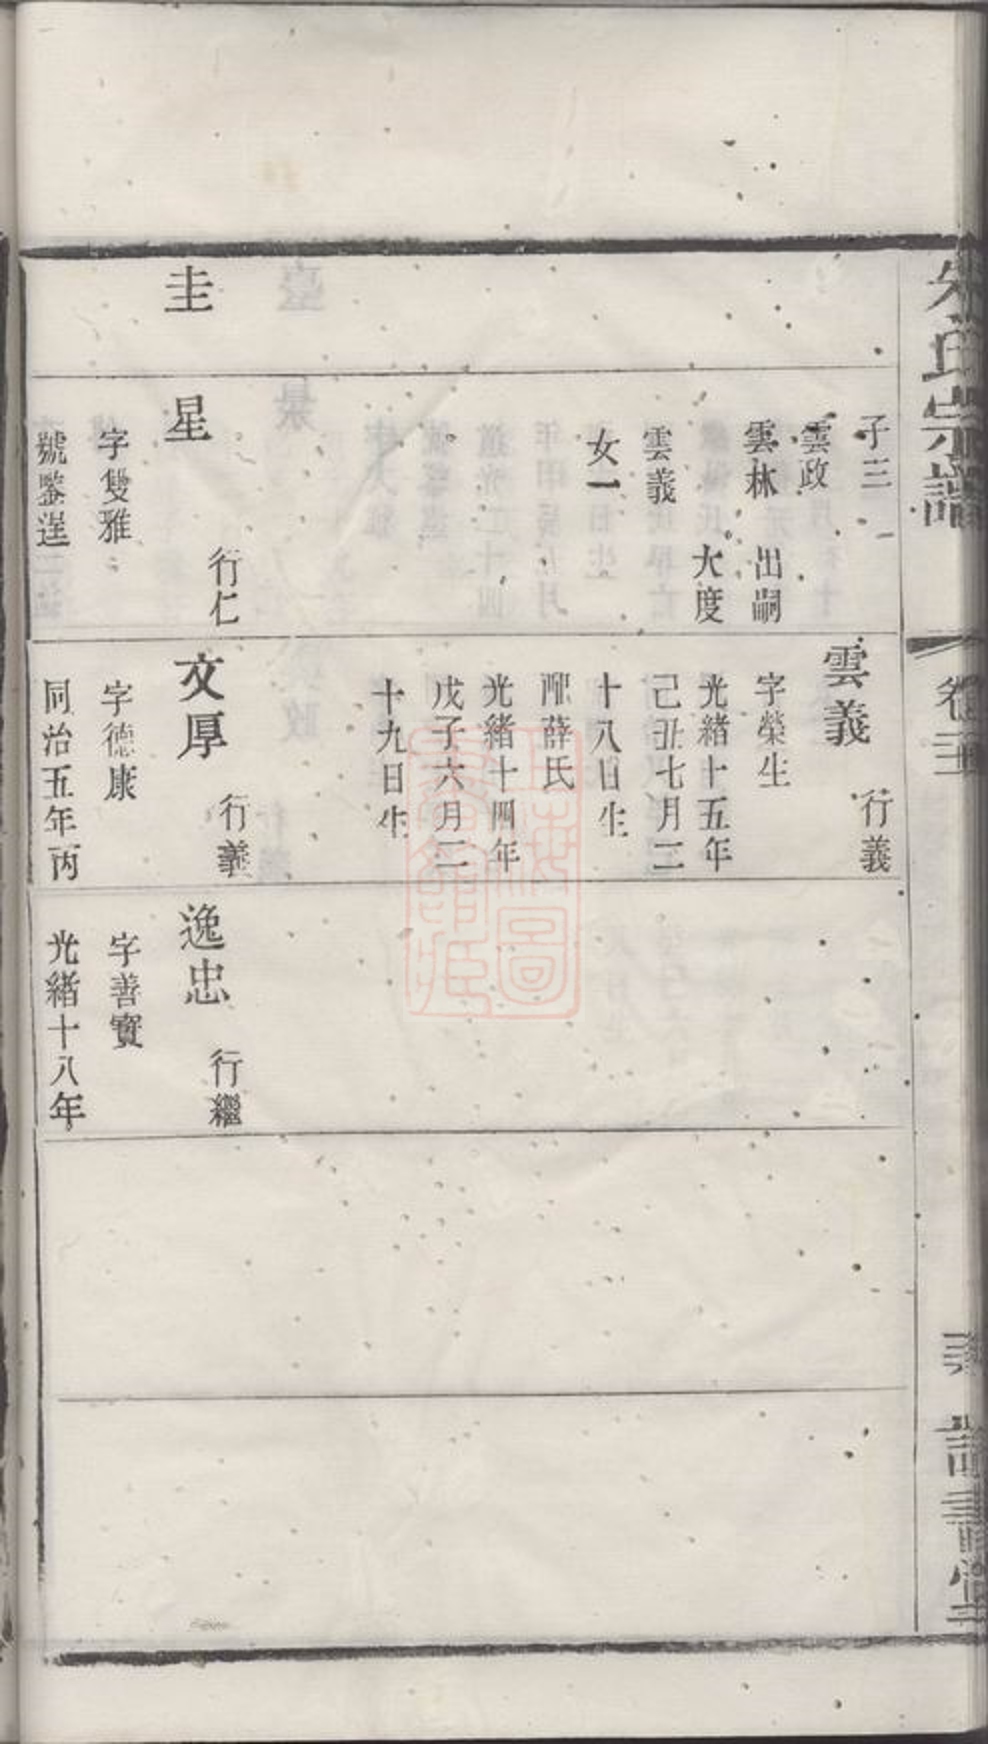 朱氏宗譜
卷三
讀書堂
圭
子三
雲政
雲林 出嗣
大度
雲義
女一
星 行仁
字雙雅
號鑒逞
雲義 行義
字榮生
光緒十五年
己丑七月二
十八日生
配薛氏
光緒十四年
戊子六月二
十九日生
文厚 行義
字德康
同治五年丙
逸忠 行繼
字善寶
光緒十八年